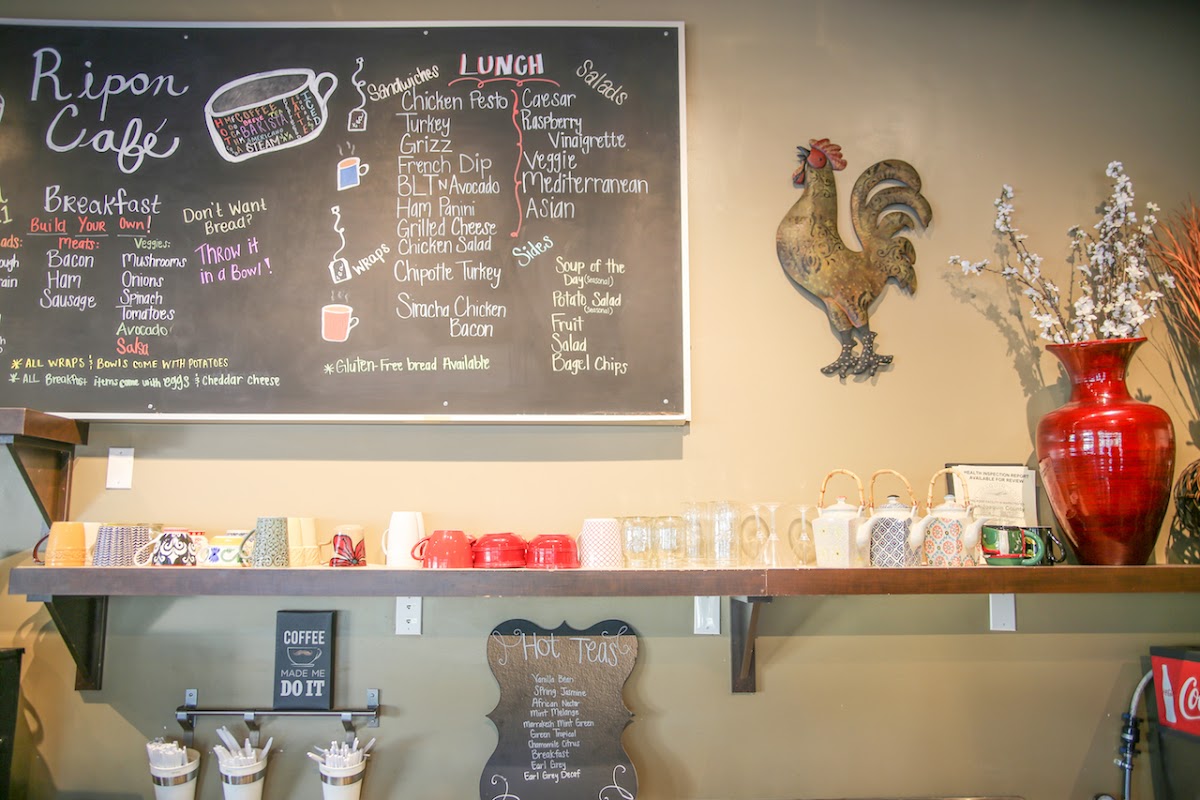 Ripon
Café
Breakfast
Build Your Own!
Meats:
Bacon
Ham
Sausage
Veggies:
Mushrooms
Onions
Spinach
Tomatoes
Avocado
Salsa
Don't Want
Bread?
Throw it
in a Bowl!
*ALL WRAPS & BOWLS COME WITH POTATOES
*ALL Breakfast items come with eggs & cheddar cheese
COFFEE
BARISTA
AMERICANO
STEAM
LUNCH
Sandwiches
Chicken Pesto
Turkey
Grizz
French Dip
BLT N Avocado
Ham Panini
Grilled Cheese
Chicken Salad
Wraps
Chipotle Turkey
Siracha Chicken
Bacon
*Gluten-Free bread Available
Salads
Caesar
Raspberry
Vinaigrette
Veggie
Mediterranean
Asian
Sides
Soup of the
Day (Seasonal)
Potato Salad
(Seasonal)
Fruit
Salad
Bagel Chips
HEALTH INSPECTION REPORT
AVAILABLE FOR REVIEW
COFFEE
MADE ME
DO IT
Hot Teas
Vanilla Bean
Spring Jasmine
African Nectar
Mint Melange
Marrakesh Mint Green
Green Tropical
Chamomile Citrus
Breakfast
Earl Grey
Earl Grey Decaf